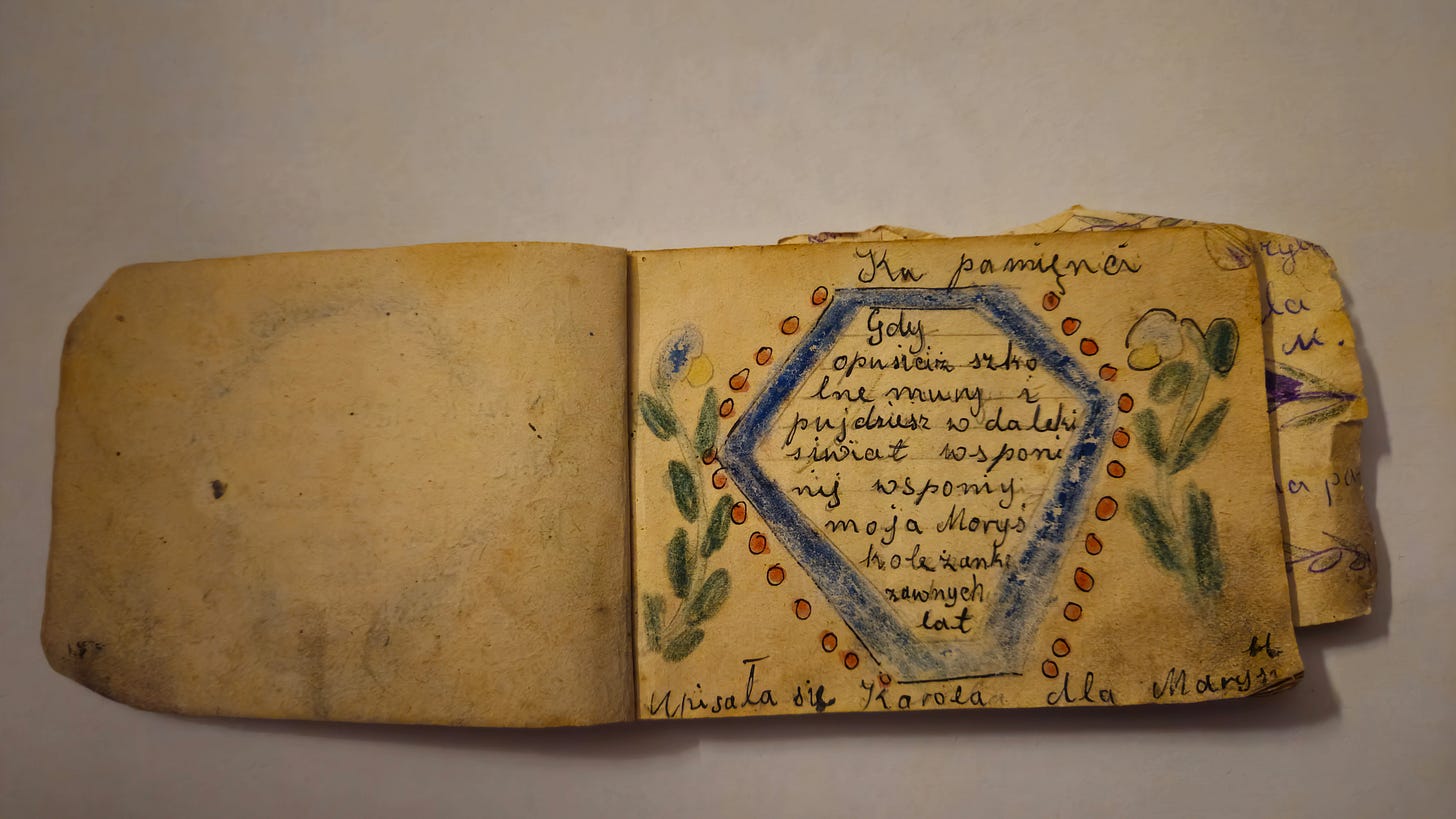 Ku pamięnci
Gdy
opuścisz szko
lne mury i
pujdziesz w daleki
siwiat wspomi
nij wspomij
moja Moryś
koleżanki
zawnych
lat
Wpisała się Karola dla Marysi
la
M.